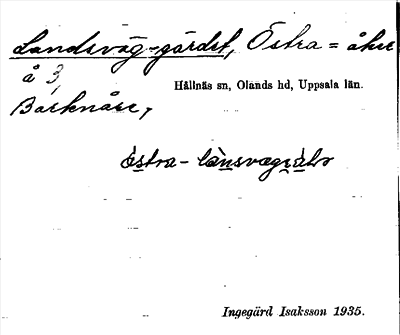 Landsväg-gärdet, Östra = åker
å 3,
Hållnäs sn, Olands hd, Uppsala län.
Barknåre,
östra-lànsvægæ̀ḷṣ
Ingegärd Isaksson 1935.